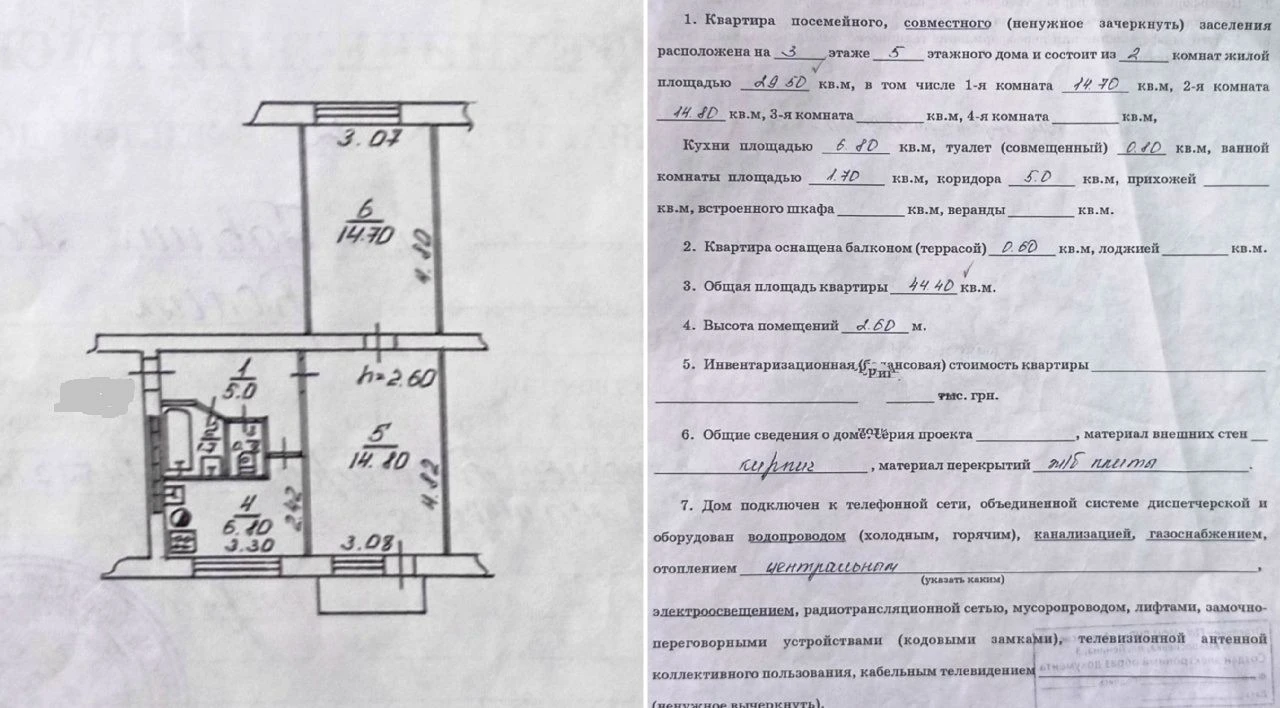 3.07
6
14.70
4.80
1
5.0
h=2.60
5
14.80
4.82
4
6.80
2.42
3.30
3.08
1. Квартира посемейного, совместного (ненужное зачеркнуть) заселения
расположена на 3 этаже 5 этажного дома и состоит из 2 комнат жилой
площадью 29.50 кв.м, в том числе 1-я комната 14.70 кв.м, 2-я комната
14.80 кв.м, 3-я комната кв.м, 4-я комната кв.м,
Кухни площадью 6.80 кв.м, туалет (совмещенный) 0.80 кв.м, ванной
комнаты площадью 1.70 кв.м, коридора 5.0 кв.м, прихожей
кв.м, встроенного шкафа кв.м, веранды кв.м.
2. Квартира оснащена балконом (террасой) 0.60 кв.м, лоджией кв.м.
3. Общая площадь квартиры 44.40 кв.м.
4. Высота помещений 2.60 м.
5. Инвентаризационная стоимость квартиры
тыс. грн.
6. Общие сведения о доме: серия проекта , материал внешних стен
кирпич , материал перекрытий ж/б плиты .
7. Дом подключен к телефонной сети, объединенной системе диспетчерской и
оборудован водопроводом (холодным, горячим), канализацией, газоснабжением,
отоплением центральным ,
(указать каким)
электроосвещением, радиотрансляционной сетью, мусоропроводом, лифтами, замочно-
переговорными устройствами (кодовыми замками), телевизионной антенной
коллективного пользования, кабельным телевидением
(ненужное вычеркнуть).